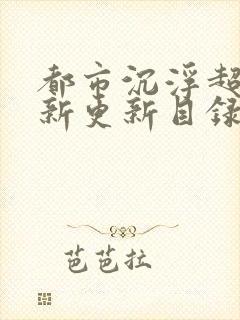 都市沉浮超
新更新目录
芭芭拉